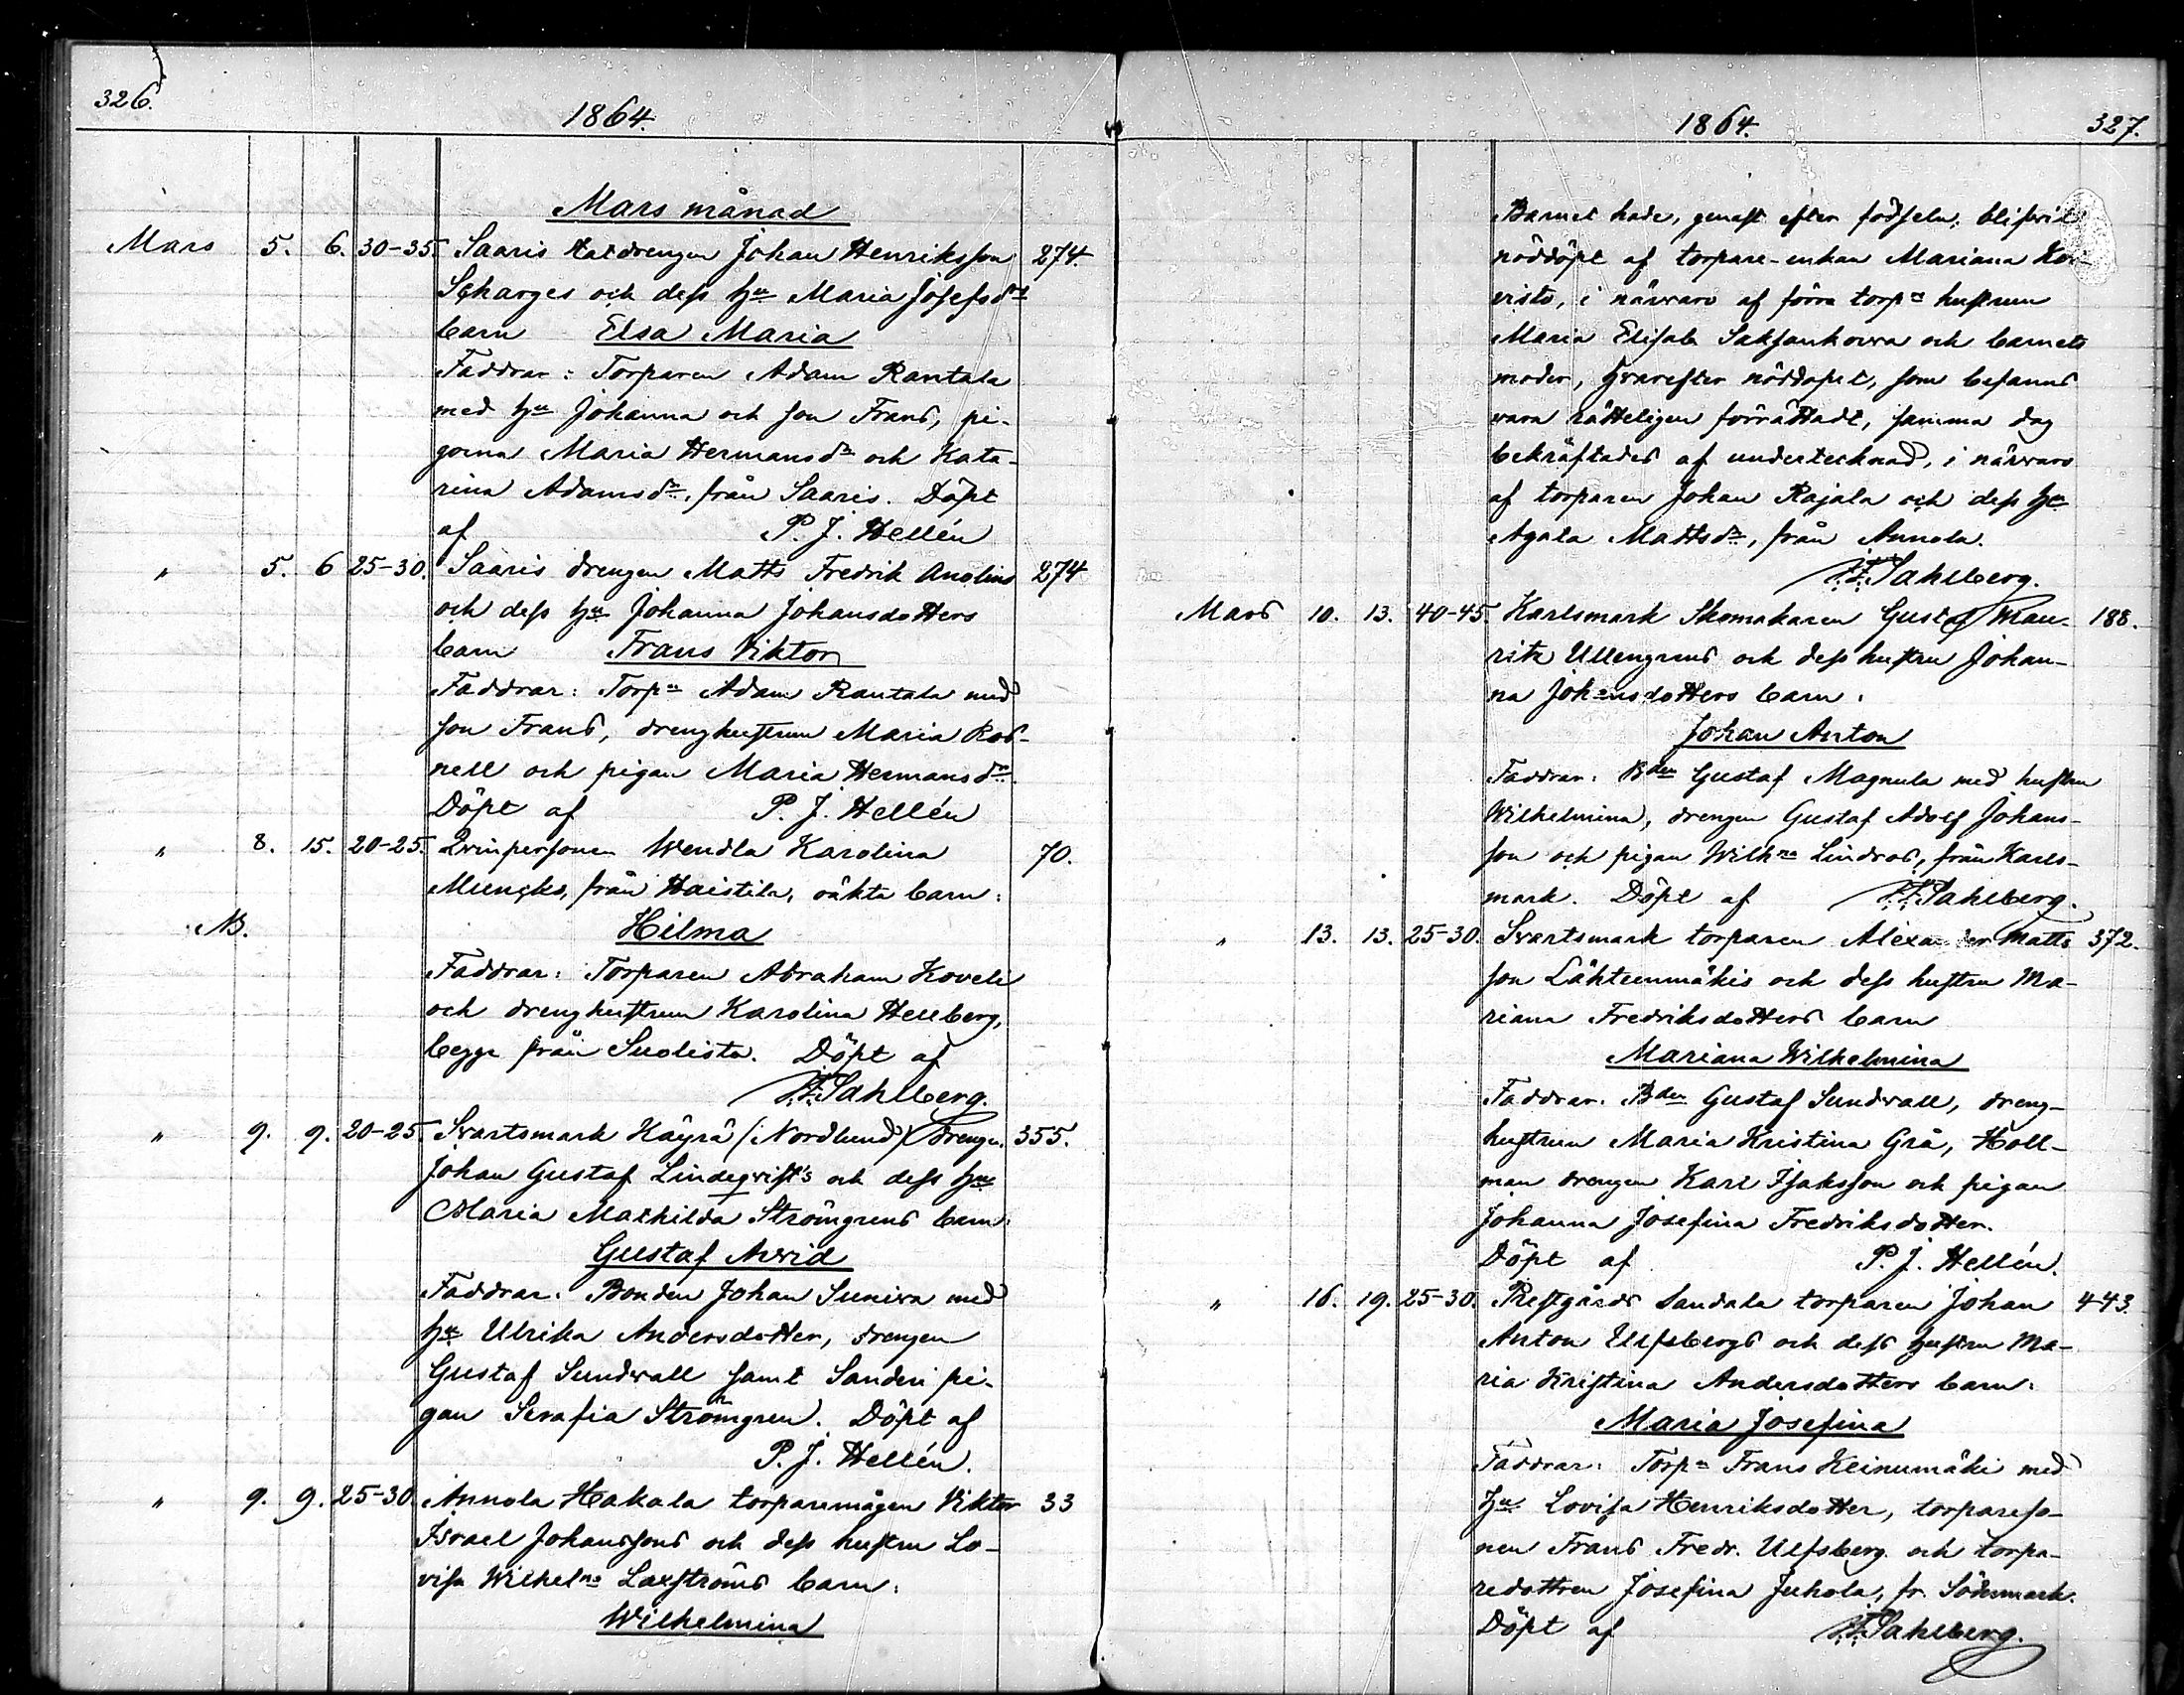 326.
1864.
Mars månad
Mars 5. 6. 30-35. Saaris drengen Johan Henriksson 274.
Scharges och dess hu Maria Josefsdr
barn Elsa Maria
Faddrar: Torparen Adam Rantala
med hu Johanna och son Frans, pi-
gorna Maria Hermansdr och Kata-
rina Adamsdr, från Saaris. Döpt
af P. J. Hellén
" 5. 6 25-30. Saaris drengen Matts Fredrik Anolins 274
och dess hu Johanna Johansdotters
barn Frans Viktor
Faddrar: Torpn Adam Rantala med
son Frans, dreng hustrun Maria Ros-
nell och pigan Maria Hermansdr.
Döpt af P. J. Hellén
" 8. 15. 20-25. Qvinpersonen Wendla Karolina 70.
Muncks, från Haistila, oäkta barn:
NB. Hilma
Faddrar: Torparen Abraham Koveli
och dreng hustrun Karolina Hellberg,
begge från Suolisto. Döpt af
F. F. Sahlberg.
" 9. 9. 20-25. Svartsmark Käyrä (Nordlund) drengen 355.
Johan Gustaf Lindeqvist's och dess hus
Maria Mathilda Strömgrens barn:
Gustaf Arvid
Faddrar: Bonden Johan Suniva med
hu Ulrika Andersdotter, drengen
Gustaf Sundvall samt Sanden pi-
gan Serafia Strömgren. Döpt af
P. J. Hellén.
" 9. 9. 25-30. Annola Hakala torparemågen Viktor 33
Israel Johanssons och dess hustru Lo-
visa Wilhelna Laxströms barn:
Wilhelmina
1864.
327.
Barnet hade, genast efter födseln, blifvit
nöddöpt af torpare-enkan Mariana Koi-
visto, i närvaro af förra torpe hustrun
Maria Elisab. Saksankowa och barnets
moder, hvarefter nöddopet, som befanns
vara rätteligen förrättadt, samma dag
bekräftades af undertecknad, i närvaro
af torparen Johan Rajala och dess hu
Agata Mattsdr, från Annola.
F. F. Sahlberg.
Mars 10. 13. 40-45. Karlsmark Skomakaren Gustaf Mau- 188.
ritz Ullengrens och dess hustru Johan-
na Johansdotters barn:
Johan Anton
Faddrar: Bden Gustaf Magnula med hustru
Wilhelmina, drengen Gustaf Adolf Johans-
son och pigan Wilhna Lindros, från Karls-
mark. Döpt af F. F. Sahlberg.
" 13. 13. 25-30. Svartsmark torparen Alexander Matts 372.
son Lähteenmäkis och dess hustru Ma-
riana Fredriksdotters barn
Mariana Wilhelmina
Faddrar: Bden Gustaf Sundvall, dreng-
hustrun Maria Kristina Grå, Holl-
man drengen Karl Isaksson och pigan
Johanna Josefina Fredriksdotter.
Döpt af P. J. Hellén.
" 16. 19. 25-30. Prestgårds Sandala torparen Johan 443.
Anton Ulfsbergs och dess hustru Ma-
ria Kristina Andersdotters barn:
Maria Josefina
Faddrar: Torpn Frans Keinumäki med
hu Lovisa Henriksdotter, torpareso-
nen Frans Fredr. Ulfsberg och torpa-
redottren Josefina Juhola, fr. Södermark.
Döpt af F. F. Sahlberg.